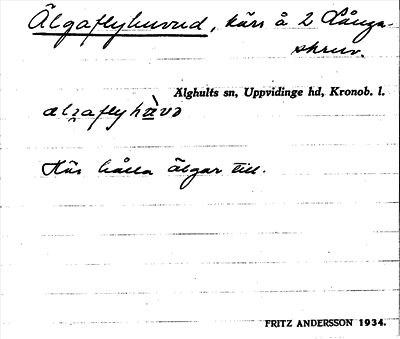 Älgaflyhuvud, kärr å 2 Långa-
skruv.
Älghults sn, Uppvidinge hd, Kronob. l.
ælgaflyhǜvd
Här hålla älgar till.
FRITZ ANDERSSON 1934.